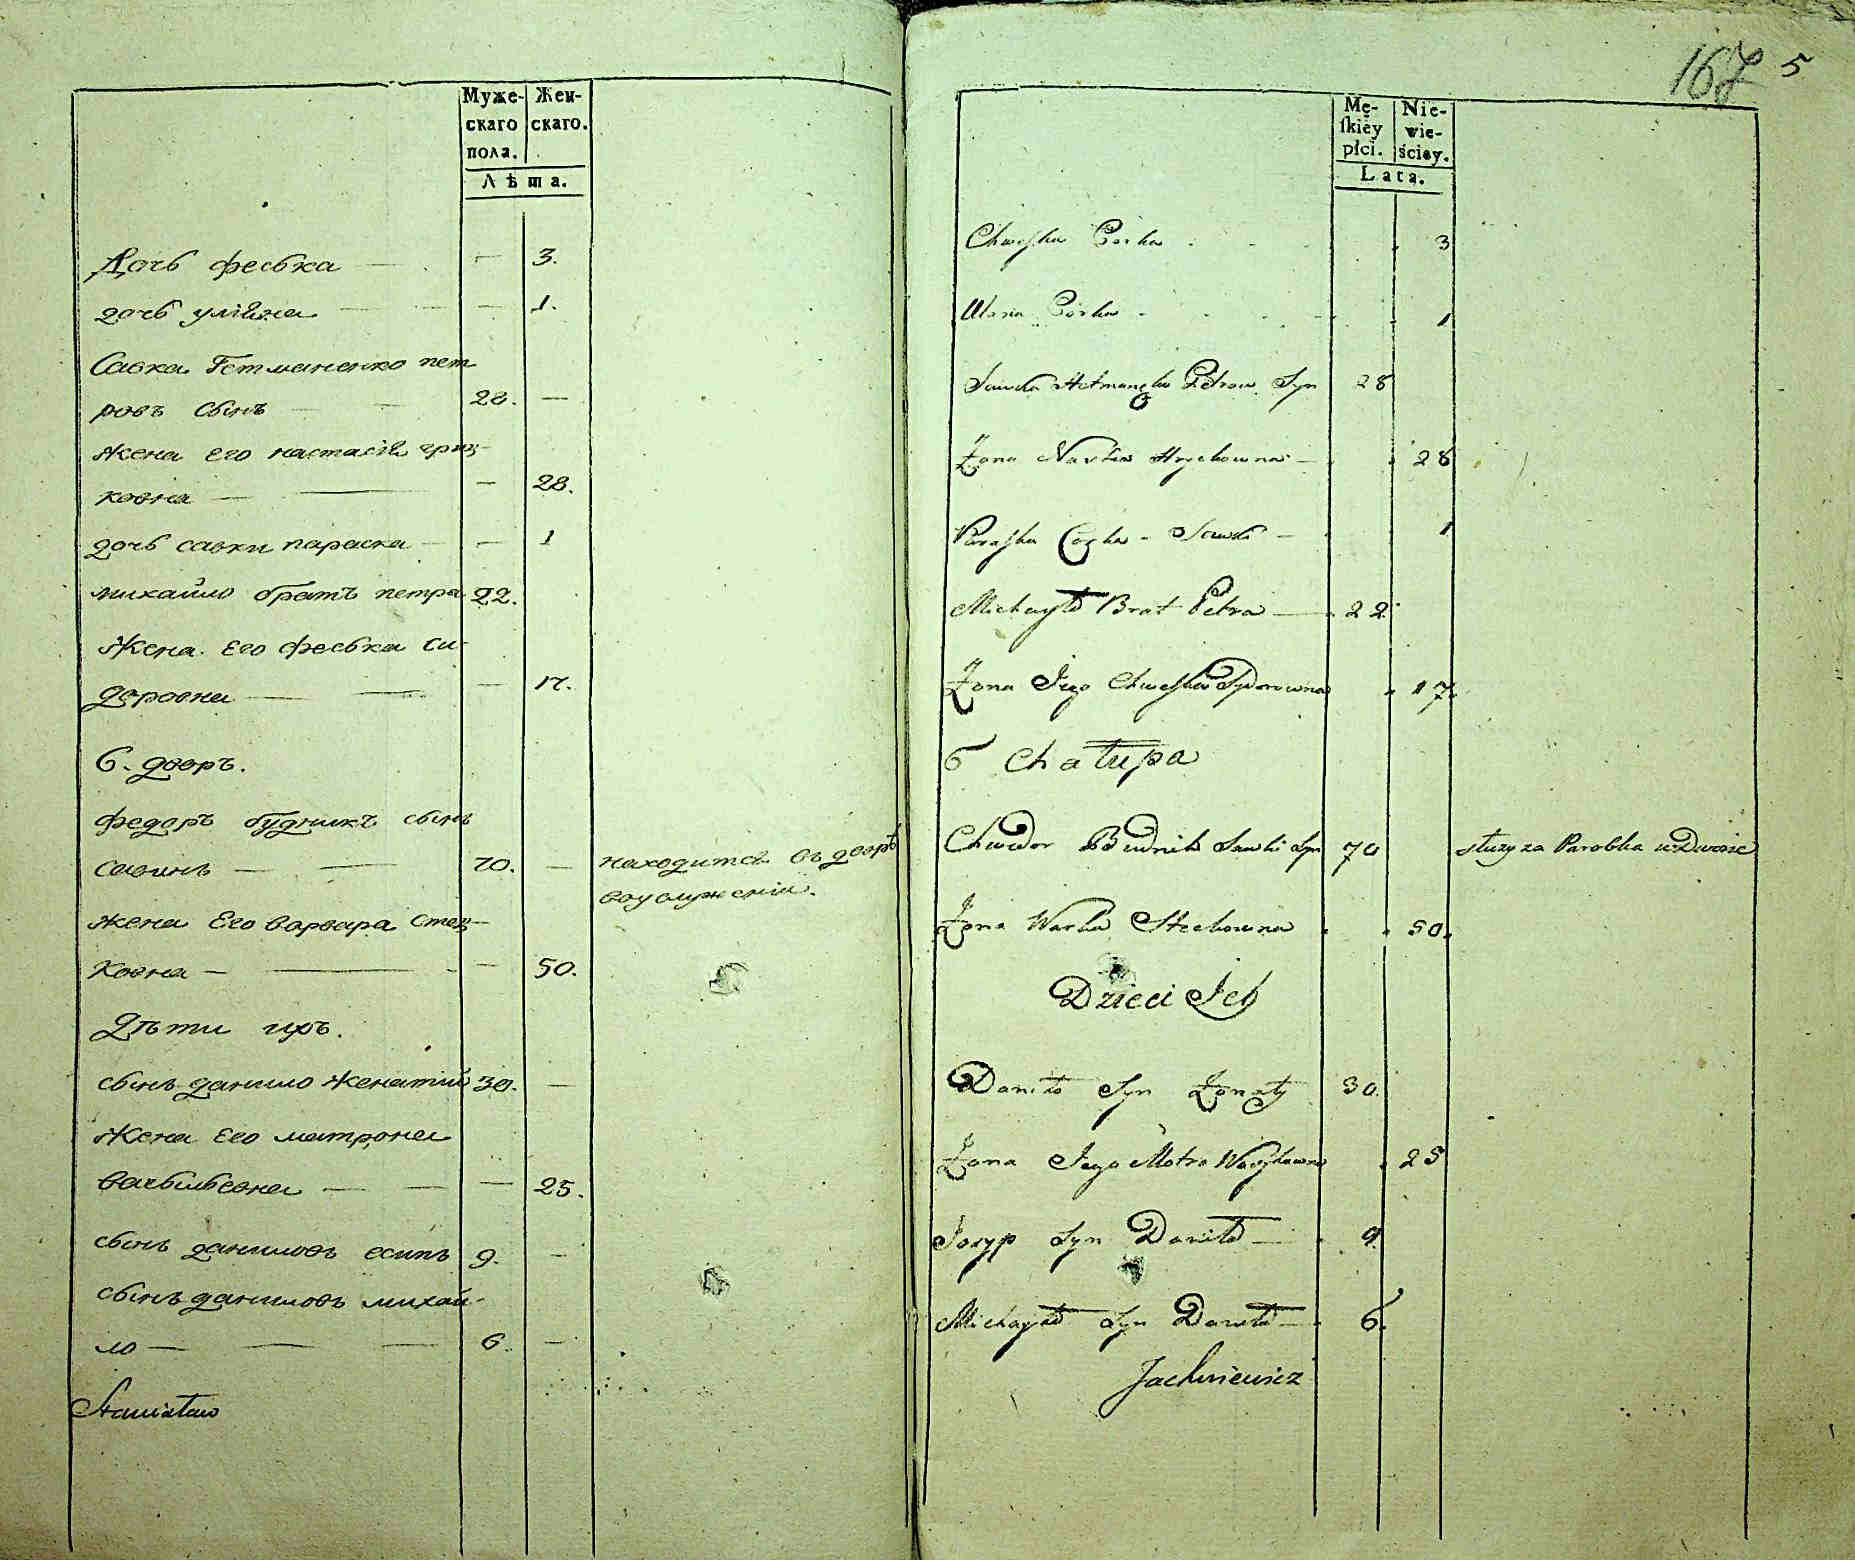 Муже- Жен-
скаго скаго.
пола.
Лѣта.
Дочь феська — — 3.
дочь улїяна — — 1.
Савка Гетманенко пет
ровъ сынъ — 28. —
жена его настасїя гриц-
ковна — — 28.
дочь савки параска — — 1
михайло братъ петра 22.
жена его феська си-
доровна — — 17.
6. дворъ.
федоръ будникъ сынъ
савинъ — 70. — находится въ дворѣ
воуслуженїи.
жена Его варвара стец-
ковна — — 50.
Дѣти ихъ.
сынъ данило женатий 30. —
жена Его матрона
васьильевна — — 25.
сынъ даниловъ есипъ 9. —
сынъ даниловъ михай-
ло — 6. —
Stanisław
167 5
Mę- Nie-
skiey wie-
płci. ściey.
Lata.
Chweśka Corka 3
Ulana Córka 1
Sawka Hetmanenko Petrow Syn 28
Żona Nastia Hryckowna 28
Paraska Corka Sawki 1
Michayło Brat Petra 22
Żona Jego Chweśka Sydorowna 17.
6 Chałupa
Chwedor Budnik Sawki Syn 70 słuzy za Parobka w Dworze
Żona Warka Steckowna 50.
Dzieci Ich
Daniło Syn Żonaty 30.
Żona Jego Motra Wasylowna 25
Josyp Syn Daniła 9
Michayło Syn Daniła 6.
Jachniewicz